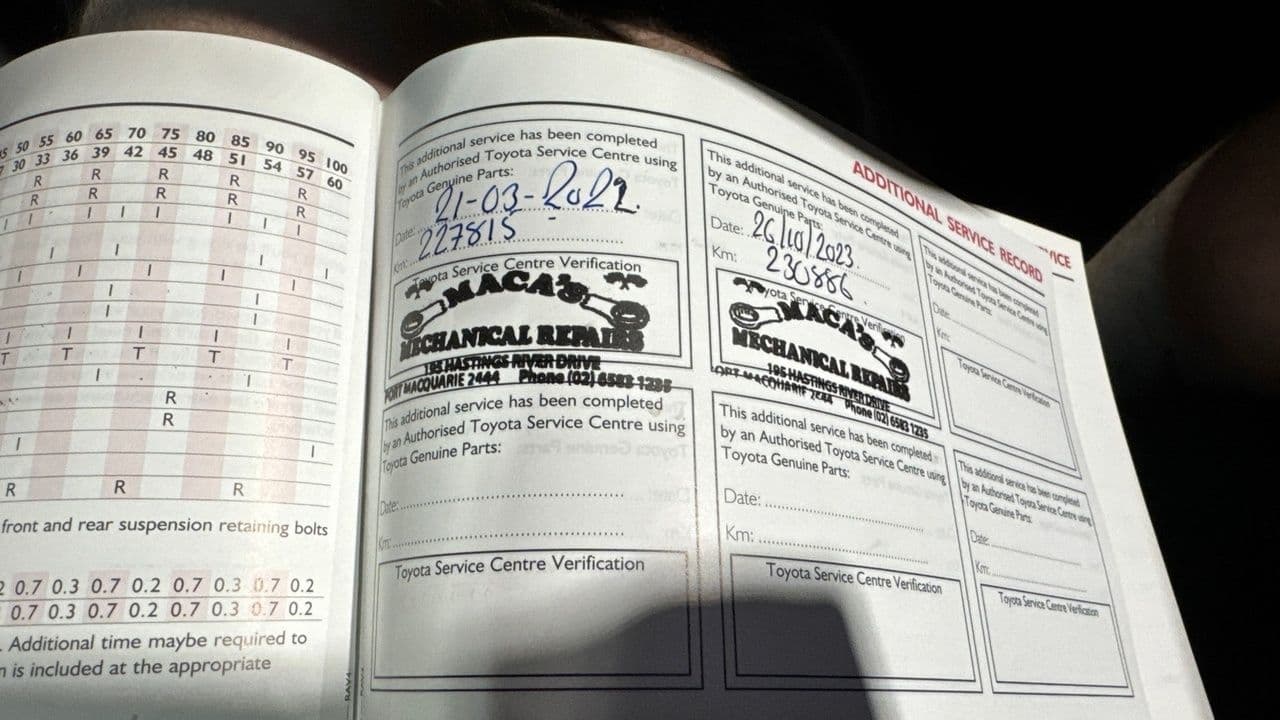 50 55 60 65 70 75 80 85 90 95 100
30 33 36 39 42 45 48 51 54 57 60
R R R R R
R R R R R
R
T T T T T
R
R
R R R
front and rear suspension retaining bolts
0.7 0.3 0.7 0.2 0.7 0.3 0.7 0.2
0.7 0.3 0.7 0.2 0.7 0.3 0.7 0.2
Additional time maybe required to
is included at the appropriate
RAV4
ADDITIONAL SERVICE RECORD
This additional service has been completed
by an Authorised Toyota Service Centre using
Toyota Genuine Parts:
Date: 21-03-2022.
Km: 227815
Toyota Service Centre Verification
MACA'S
MECHANICAL REPAIRS
195 HASTINGS RIVER DRIVE
PORT MACQUARIE 2444 Phone (02) 6583 1235
This additional service has been completed
by an Authorised Toyota Service Centre using
Toyota Genuine Parts:
Date:
Km:
Toyota Service Centre Verification
This additional service has been completed
by an Authorised Toyota Service Centre using
Toyota Genuine Parts:
Date: 26/10/2023.
Km: 230886
Toyota Service Centre Verification
MACA'S
MECHANICAL REPAIRS
195 HASTINGS RIVER DRIVE
PORT MACQUARIE 2444 Phone (02) 6583 1235
This additional service has been completed
by an Authorised Toyota Service Centre using
Toyota Genuine Parts:
Date:
Km:
Toyota Service Centre Verification
This additional service has been completed
by an Authorised Toyota Service Centre using
Toyota Genuine Parts:
Date:
Km:
Toyota Service Centre Verification
This additional service has been completed
by an Authorised Toyota Service Centre using
Toyota Genuine Parts:
Date:
Km:
Toyota Service Centre Verification